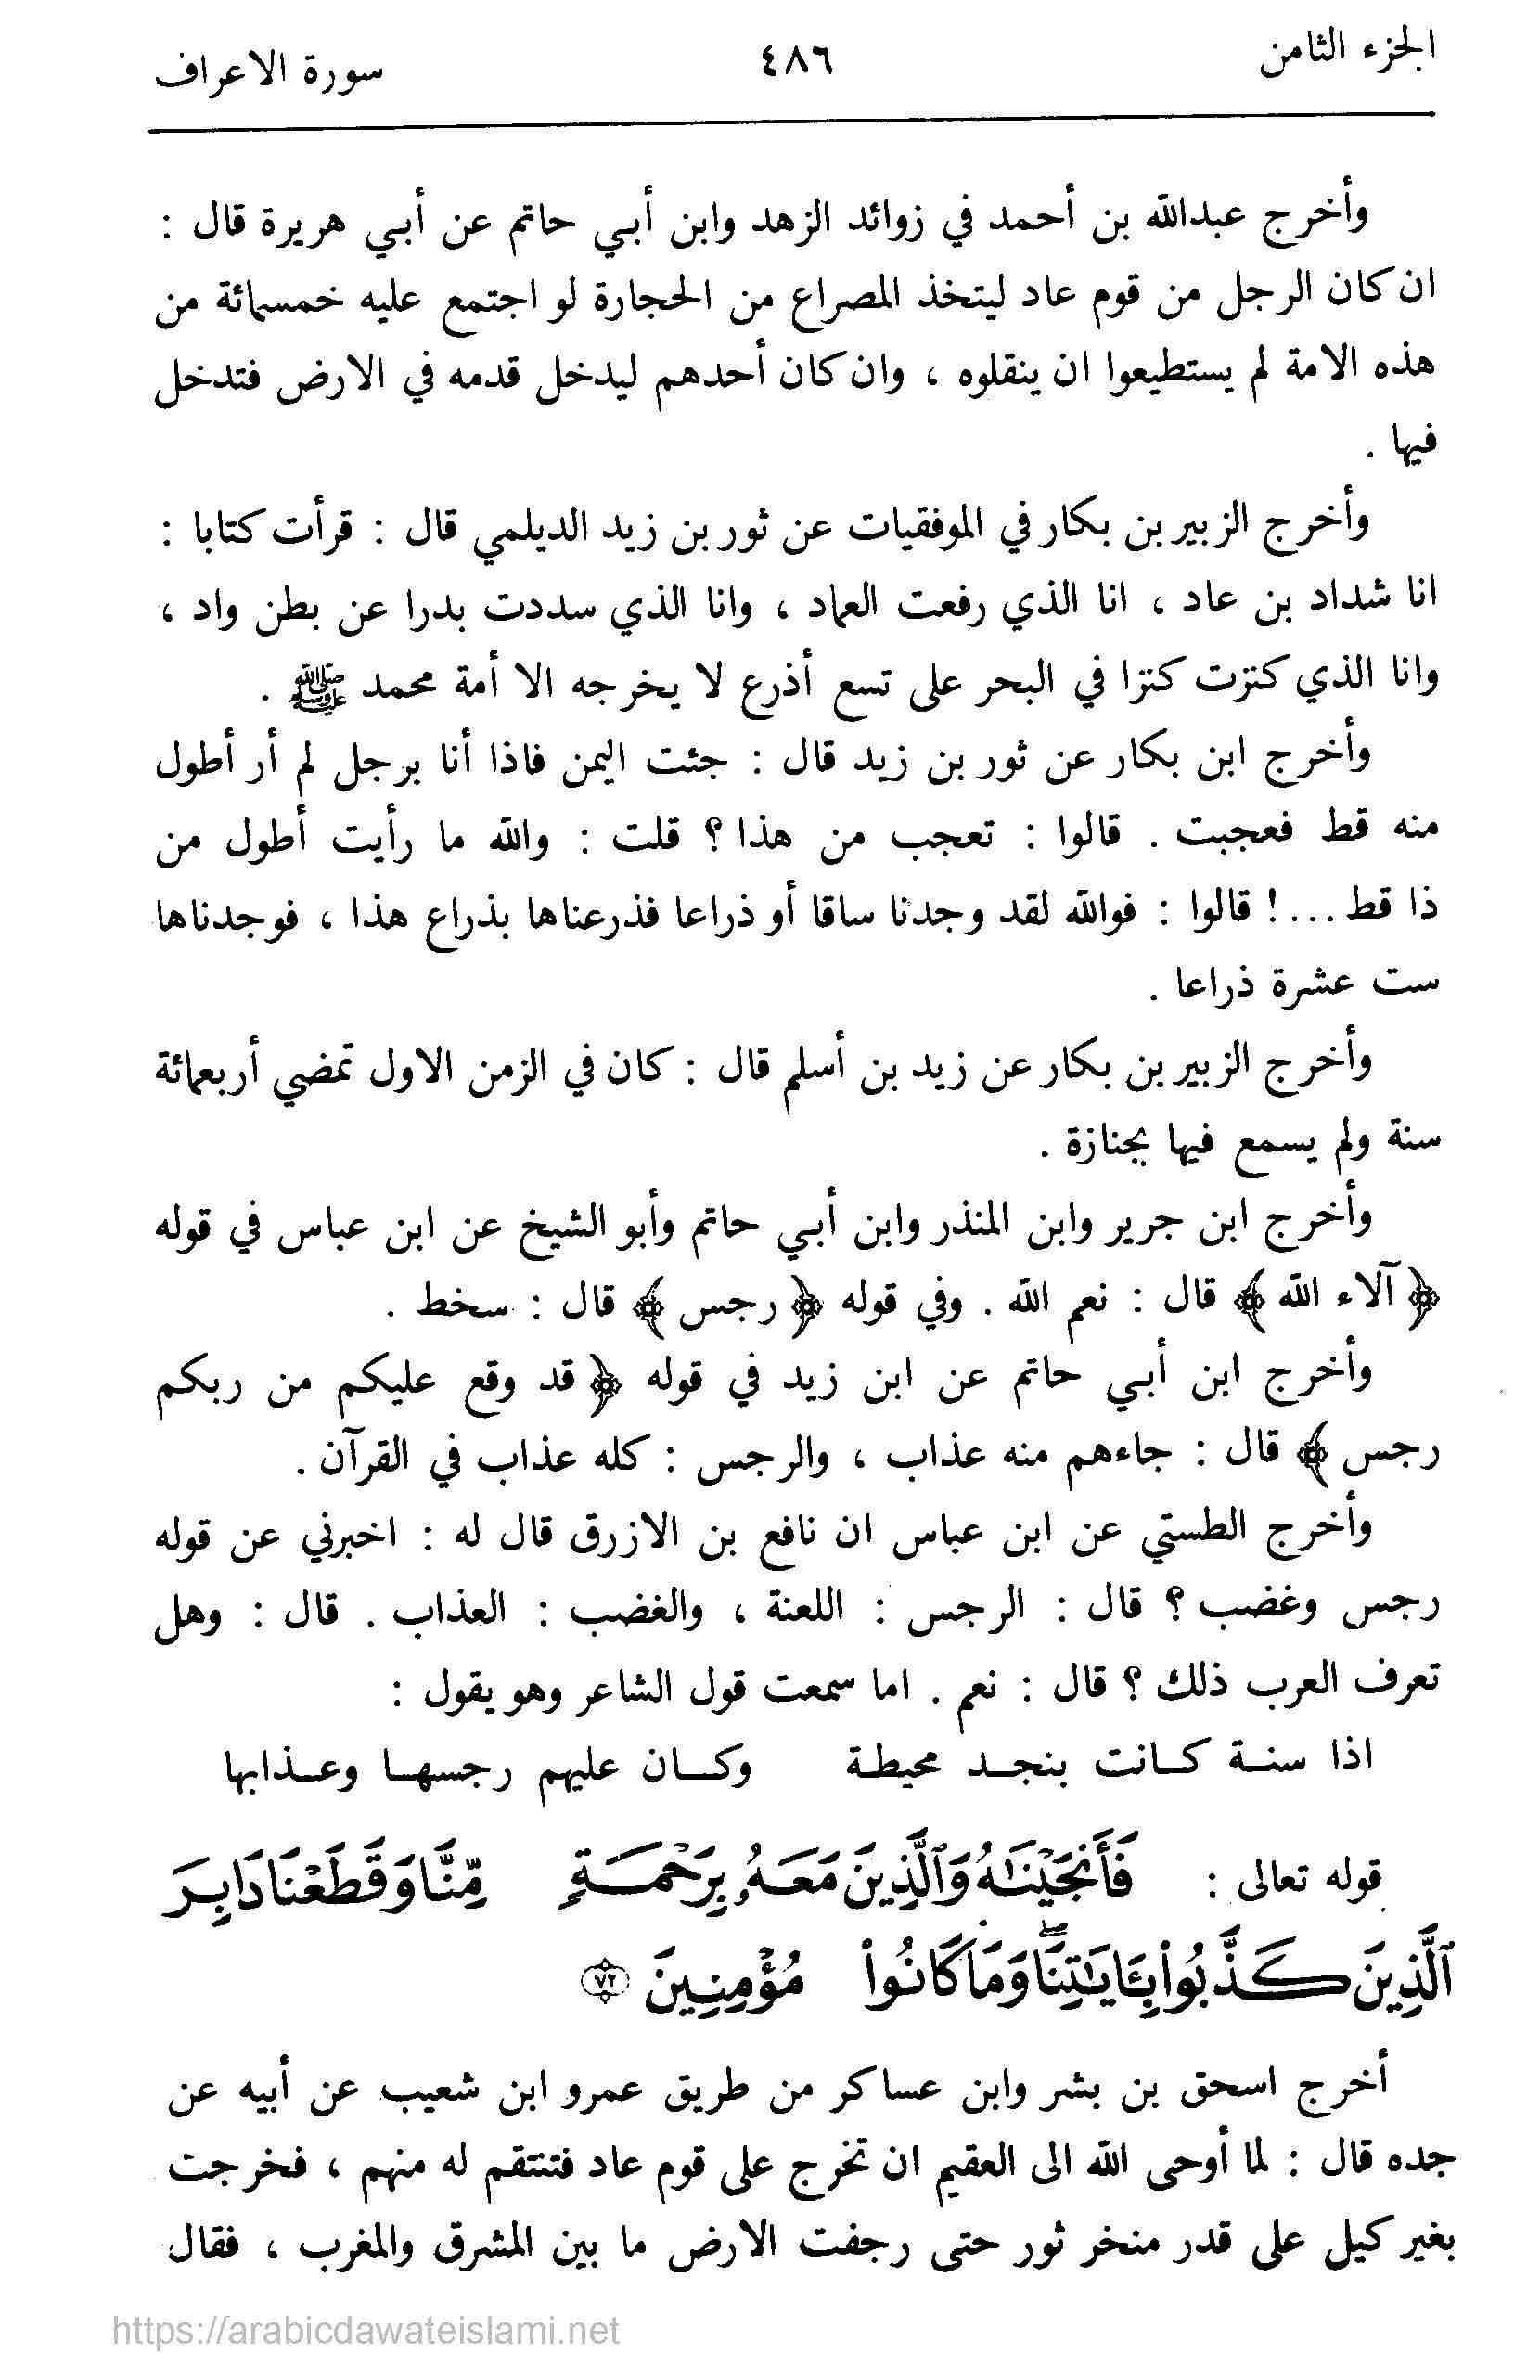 الجزء الثامن ٤٨٦ سورة الاعراف
وأخرج عبدالله بن أحمد في زوائد الزهد وابن أبـي حاتم عن أبـي هريرة قال :
ان كان الرجل من قوم عاد ليتخذ المصراع من الحجارة لو اجتمع عليه خمسمائة من
هذه الامة لم يستطيعوا ان ينقلوه ، وان كان أحدهم ليدخل قدمه في الارض فتدخل
فيها .
وأخرج الزبير بن بكار في الموفقيات عن ثور بن زيد الديلمي قال : قرأت كتابا :
انا شداد بن عاد ، انا الذي رفعت العماد ، وانا الذي سددت بدرا عن بطن واد ،
وانا الذي كنزت كنزا في البحر على تسع أذرع لا يخرجه الا أمة محمد ﷺ .
وأخرج ابن بكار عن ثور بن زيد قال : جئت اليمن فاذا أنا برجل لم أر أطول
منه قط فعجبت . قالوا : تعجب من هذا ؟ قلت : والله ما رأيت أطول من
ذا قط ...! قالوا : فوالله لقد وجدنا ساقا أو ذراعا فذرعناها بذراع هذا ، فوجدناها
ست عشرة ذراعا .
وأخرج الزبير بن بكار عن زيد بن أسلم قال : كان في الزمن الاول تمضي أربعمائة
سنة ولم يسمع فيها بجنازة .
وأخرج ابن جرير وابن المنذر وابن أبـي حاتم وأبو الشيخ عن ابن عباس في قوله
﴿ آلاء الله ﴾ قال : نعم الله . وفي قوله ﴿ رجس ﴾ قال : سخط .
وأخرج ابن أبـي حاتم عن ابن زيد في قوله ﴿ قد وقع عليكم من ربكم
رجس ﴾ قال : جاءهم منه عذاب ، والرجس : كله عذاب في القرآن .
وأخرج الطستي عن ابن عباس ان نافع بن الازرق قال له : اخبرني عن قوله
رجس وغضب ؟ قال : الرجس : اللعنة ، والغضب : العذاب . قال : وهل
تعرف العرب ذلك ؟ قال : نعم . اما سمعت قول الشاعر وهو يقول :
اذا سنـة كـانت بنجـد محيطـة وكـان عليهم رجسهـا وعـذابها
قوله تعالى : فَأَنجَيْنَٰهُ وَٱلَّذِينَ مَعَهُۥ بِرَحْمَةٍ مِّنَّا وَقَطَعْنَا دَابِرَ
ٱلَّذِينَ كَذَّبُوا۟ بِـَٔايَٰتِنَا ۖ وَمَا كَانُوا۟ مُؤْمِنِينَ ٧٢
أخرج اسحق بن بشر وابن عساكر من طريق عمرو ابن شعيب عن أبيه عن
جده قال : لما أوحى الله الى العقيم ان تخرج على قوم عاد فتنتقم له منهم ، فخرجت
بغير كيل على قدر منخر ثور حتى رجفت الارض ما بين المشرق والمغرب ، فقال
https://arabicdawateislami.net